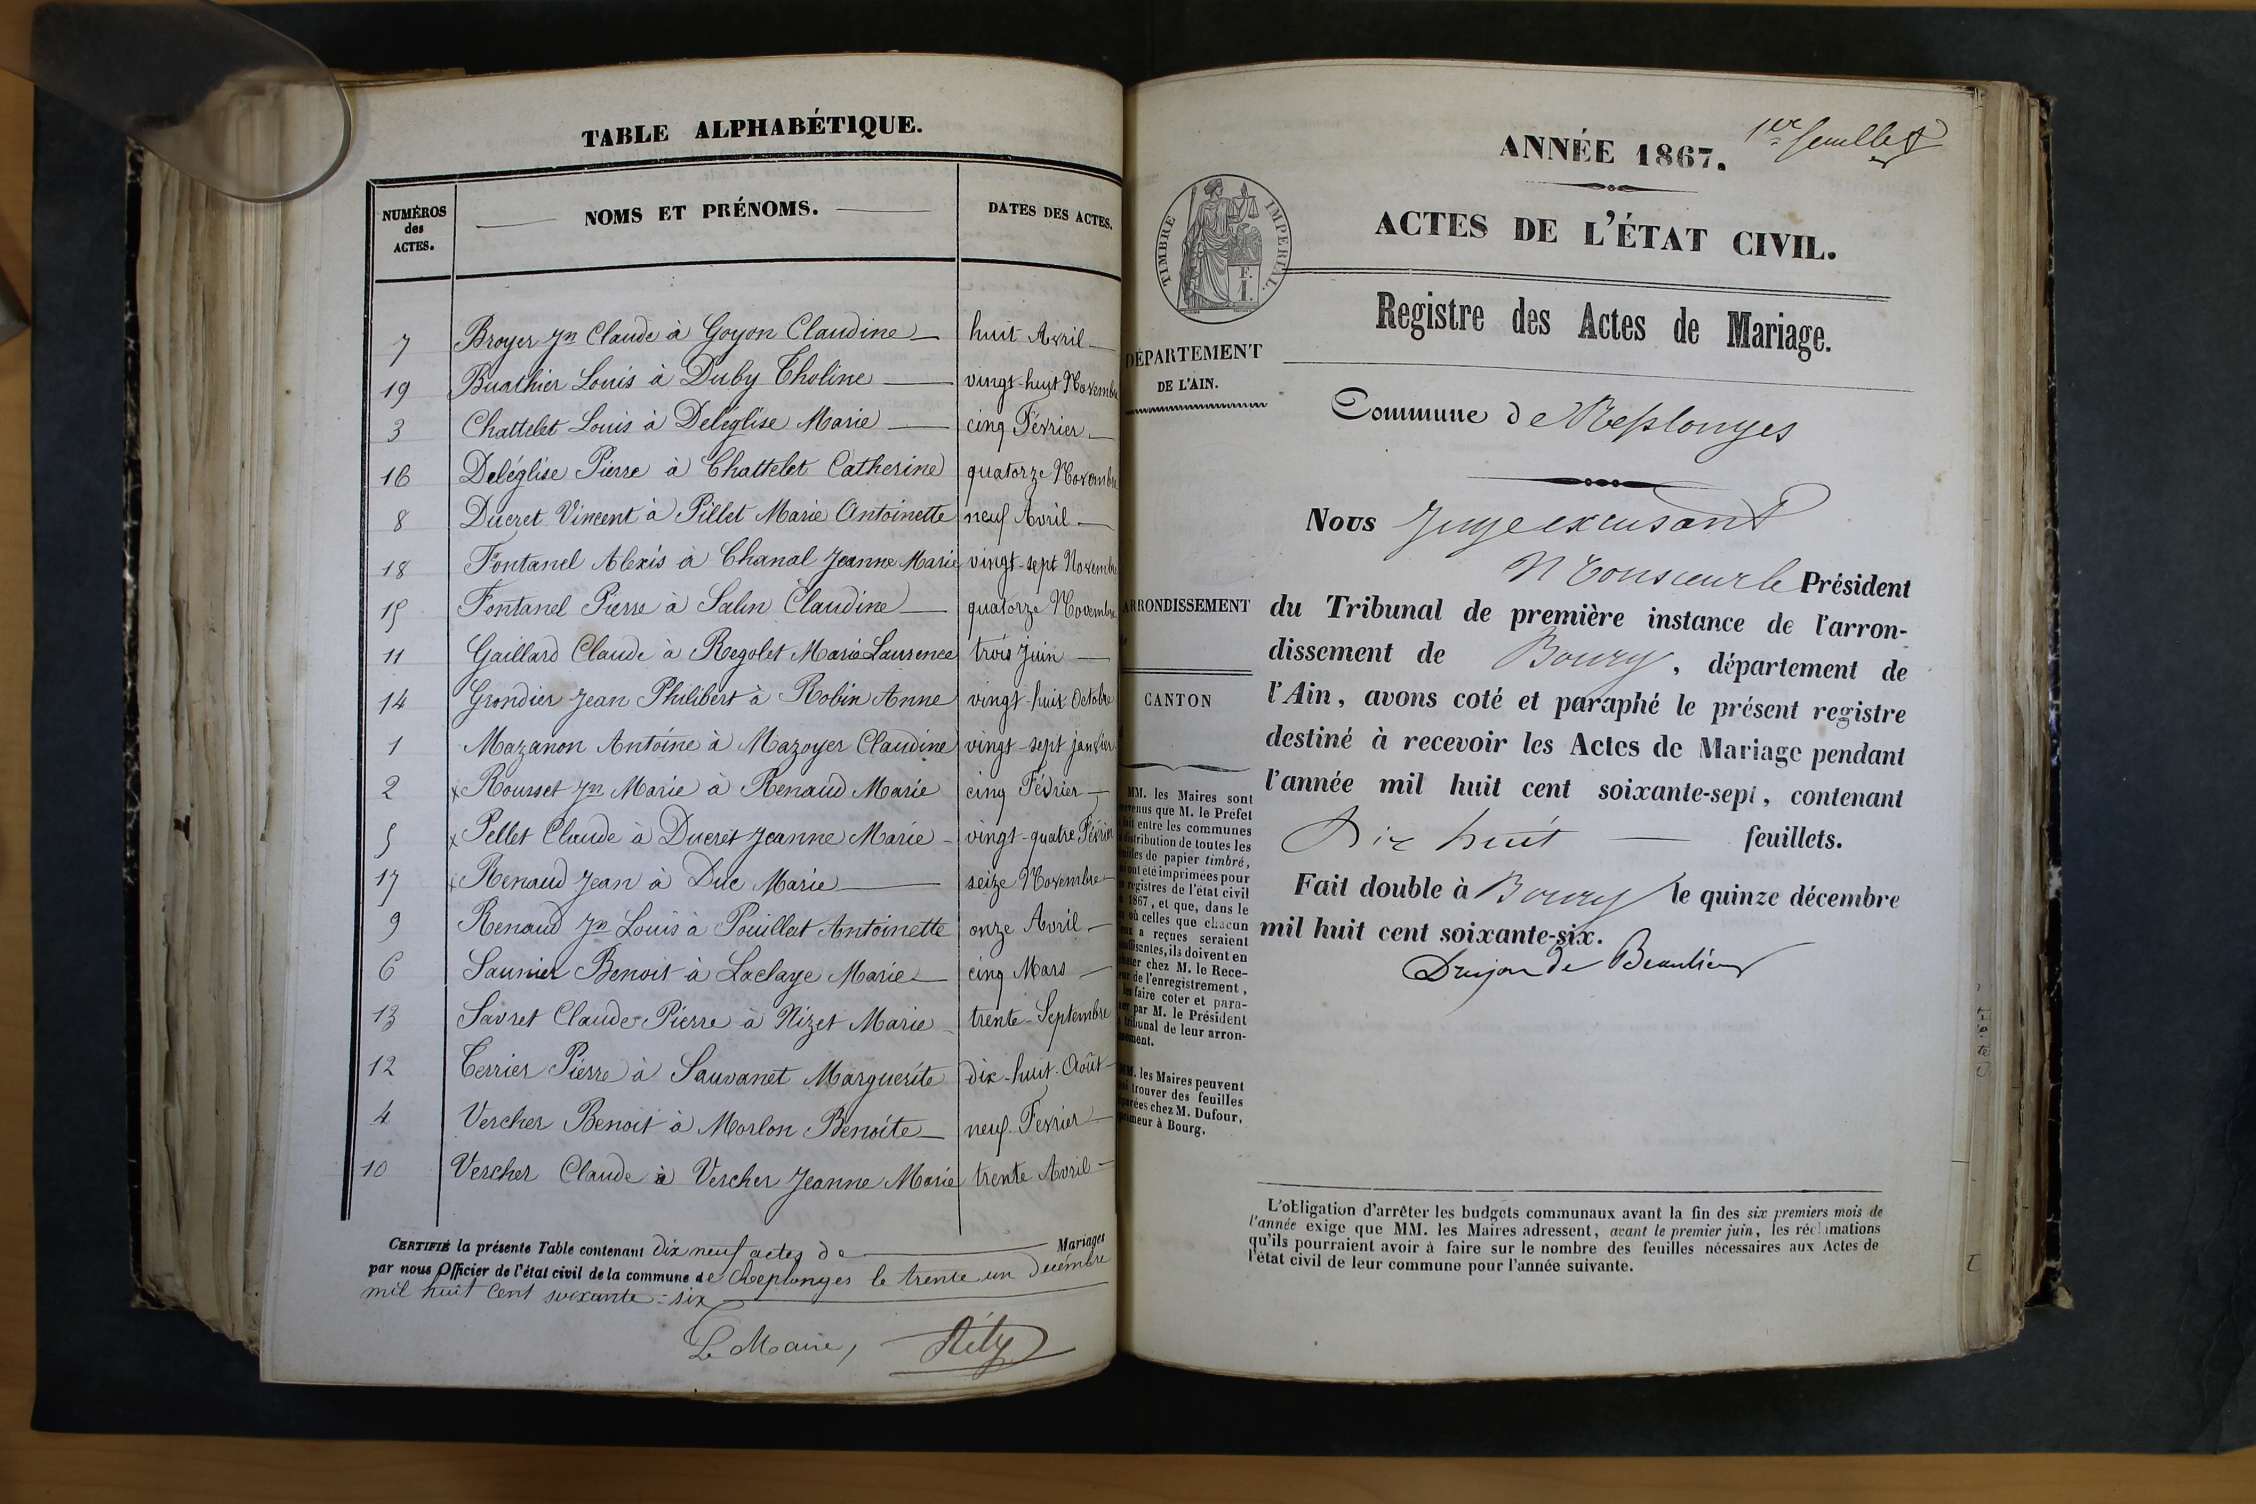 TABLE ALPHABÉTIQUE.
NUMÉROS des ACTES. NOMS ET PRÉNOMS. DATES DES ACTES.
7 Broyer Jn Claude à Goyon Claudine huit Avril
19 Buathier Louis à Duby Tholine vingt-huit Novembre
3 Chattelet Louis à Deléglise Marie cinq Février
16 Deléglise Pierre à Chattelet Catherine quatorze Novembre
8 Ducret Vincent à Pillet Marie Antoinette neuf Avril
18 Fontanel Alexis à Chanal Jeanne Marie vingt-sept Novembre
15 Fontanel Pierre à Salin Claudine quatorze Novembre
11 Gaillard Claude à Regolet Marie Laurence trois Juin
14 Grondier Jean Philibert à Robin Anne vingt-huit Octobre
1 Mazanon Antoine à Mazoyer Claudine vingt-sept janvier
2 x Rousset Jn Marie à Renaud Marie cinq Février
5 x Pellet Claude à Ducret Jeanne Marie vingt-quatre Février
17 x Renaud Jean à Duc Marie seize Novembre
9 Renaud Jn Louis à Pouillat Antoinette onze Avril
6 Saunier Benoit à Laclaye Marie cinq Mars
13 Savret Claude-Pierre à Nizet Marie trente Septembre
12 Terrier Pierre à Sauvanet Marguerite dix-huit Août
4 Vercher Benoit à Morlon Benoite neuf Fevrier
10 Vercher Claude à Vercher Jeanne Marie trente Avril
CERTIFIÉ la présente Table contenant dix neuf actes de Mariages
par nous Officier de l'état civil de la commune de Replonges le trente un décembre
mil huit cent soixante-six
Le Maire,
1er feuillet
ANNÉE 1867.
TIMBRE IMPÉRIAL.
F. I.
ACTES DE L'ÉTAT CIVIL.
Registre des Actes de Mariage.
DÉPARTEMENT
DE L'AIN.
Commune de Replonges
Nous Juge excusant
Monsieur le Président
ARRONDISSEMENT
du Tribunal de première instance de l'arron-
dissement de Bourg, département de
CANTON
l'Ain, avons coté et paraphé le présent registre
destiné à recevoir les Actes de Mariage pendant
l'année mil huit cent soixante-sept, contenant
Dix huit feuillets.
Fait double à Bourg le quinze décembre
mil huit cent soixante-six.
Drujon de Beaulieu
MM. les Maires sont
que M. le Préfet
entre les communes
distribution de toutes les
de papier timbré,
ont été imprimées pour
registres de l'état civil
1867, et que, dans le
où celles que chacun
a reçues seraient
ils doivent en
chez M. le Rece-
de l'enregistrement,
faire coter et para-
par M. le Président
tribunal de leur arron-
MM. les Maires peuvent
trouver des feuilles
chez M. Dufour,
à Bourg.
L'obligation d'arrêter les budgets communaux avant la fin des six premiers mois de
l'année exige que MM. les Maires adressent, avant le premier juin, les réclamations
qu'ils pourraient avoir à faire sur le nombre des feuilles nécessaires aux Actes de
l'état civil de leur commune pour l'année suivante.